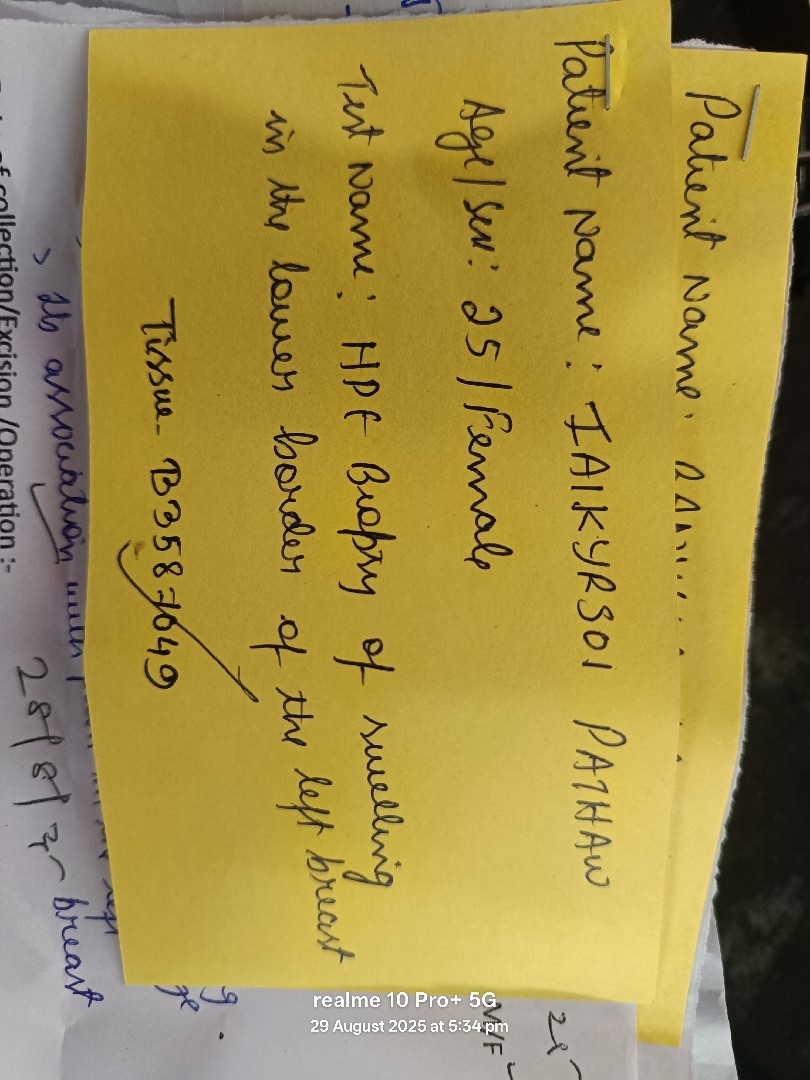 Patient Name:
Patient Name: IAIKYRSOI PATHAW
Age/Sex: 25/Female
Test Name: HPE Biopsy of swelling
in the lower border of the left breast
Tissue- B3587049
> Its association with
breast
28/8/25
of collection/Excision /Operation :-
M/F
realme 10 Pro+ 5G
29 August 2025 at 5:34 pm